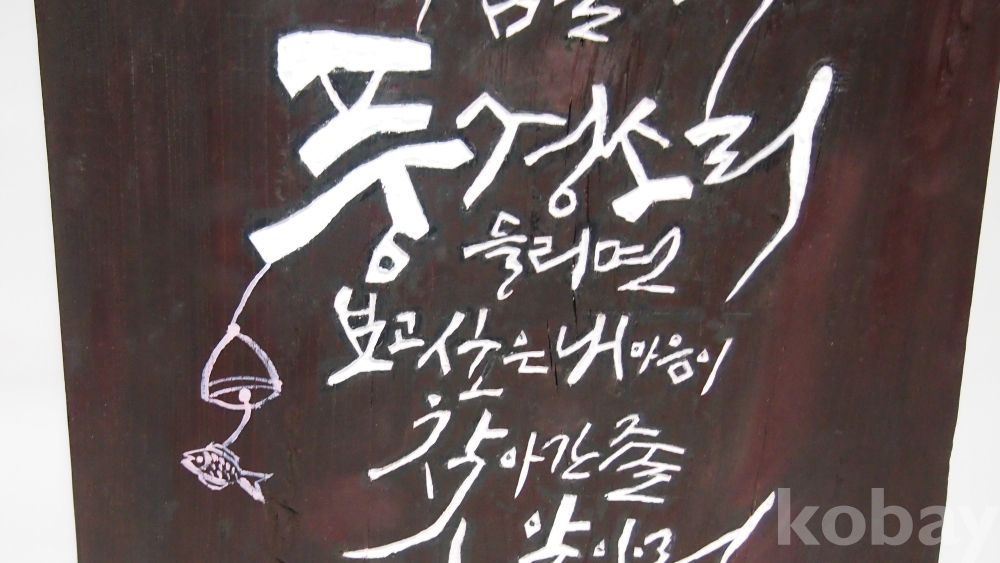 풍경소리
들리면
보고싶은 내 마음이
찾아간 줄
알아라
kobay